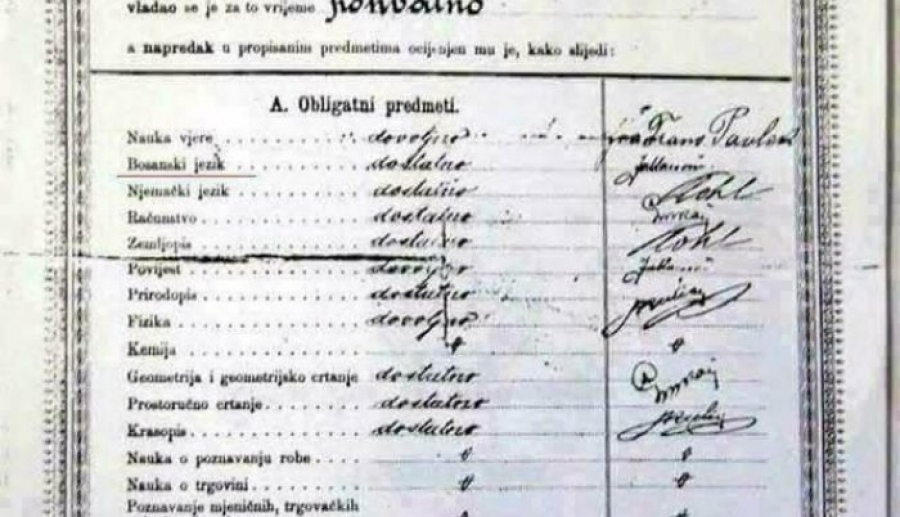 vladao se je za to vrijeme
a napredak u propisanim predmetima ocijenjen mu je, kako slijedi:
A. Obligatni predmeti.
Nauka vjere dovoljno Frano
Bosanski jezik dostatno
Njemački jezik dostatno Kohl
Računstvo dostatno
Zemljopis dostatno Kohl
Povijest dovoljno
Prirodopis dostatno
Fizika dovoljno
Kemija
Geometrija i geometrijsko crtanje dostatno
Prostoručno crtanje dostatno
Krasopis dostatno
Nauka o poznavanju robe
Nauka o trgovini
Poznavanje mjeničnih, trgovačkih